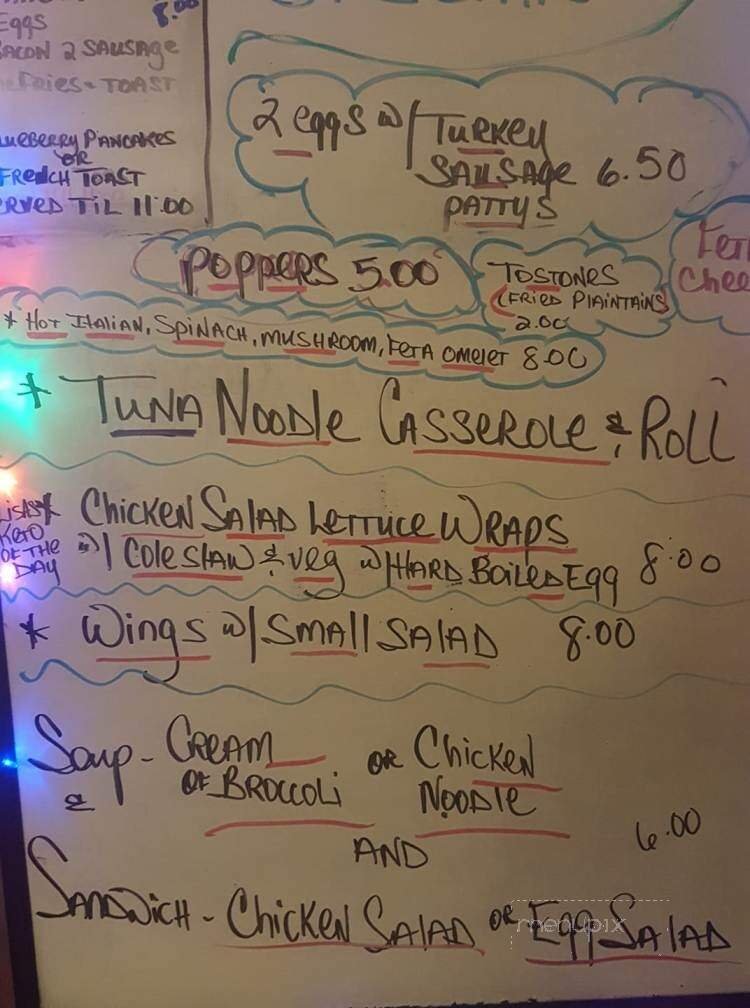 Eggs 8.00
BACON 2 SAUSAGE
Fries - TOAST
BLUEBERRY PANCAKES
OR
FRENCH TOAST
SERVED TIL 11:00
2 eggs w/ TURKEY
SAUSAGE 6.50
PATTYS
POPPERS 5.00
TOSTONES
(FRIED PLAINTAINS
2.00
* HOT ITALIAN, SPINACH, MUSHROOM, FETA OMELET 8.00
* TUNA NOODLE CASSEROLE & ROLL
LISAS * CHICKEN SALAD LETTUCE WRAPS
KETO
OF THE
DAY
w/ COLESLAW & VEG w/ HARD BOILED EGG 8.00
* WINGS w/ SMALL SALAD 8.00
SOUP - CREAM OR CHICKEN
& OF BROCCOLI NOODLE
AND 6.00
SANDWICH - CHICKEN SALAD OR EGG SALAD
menupix